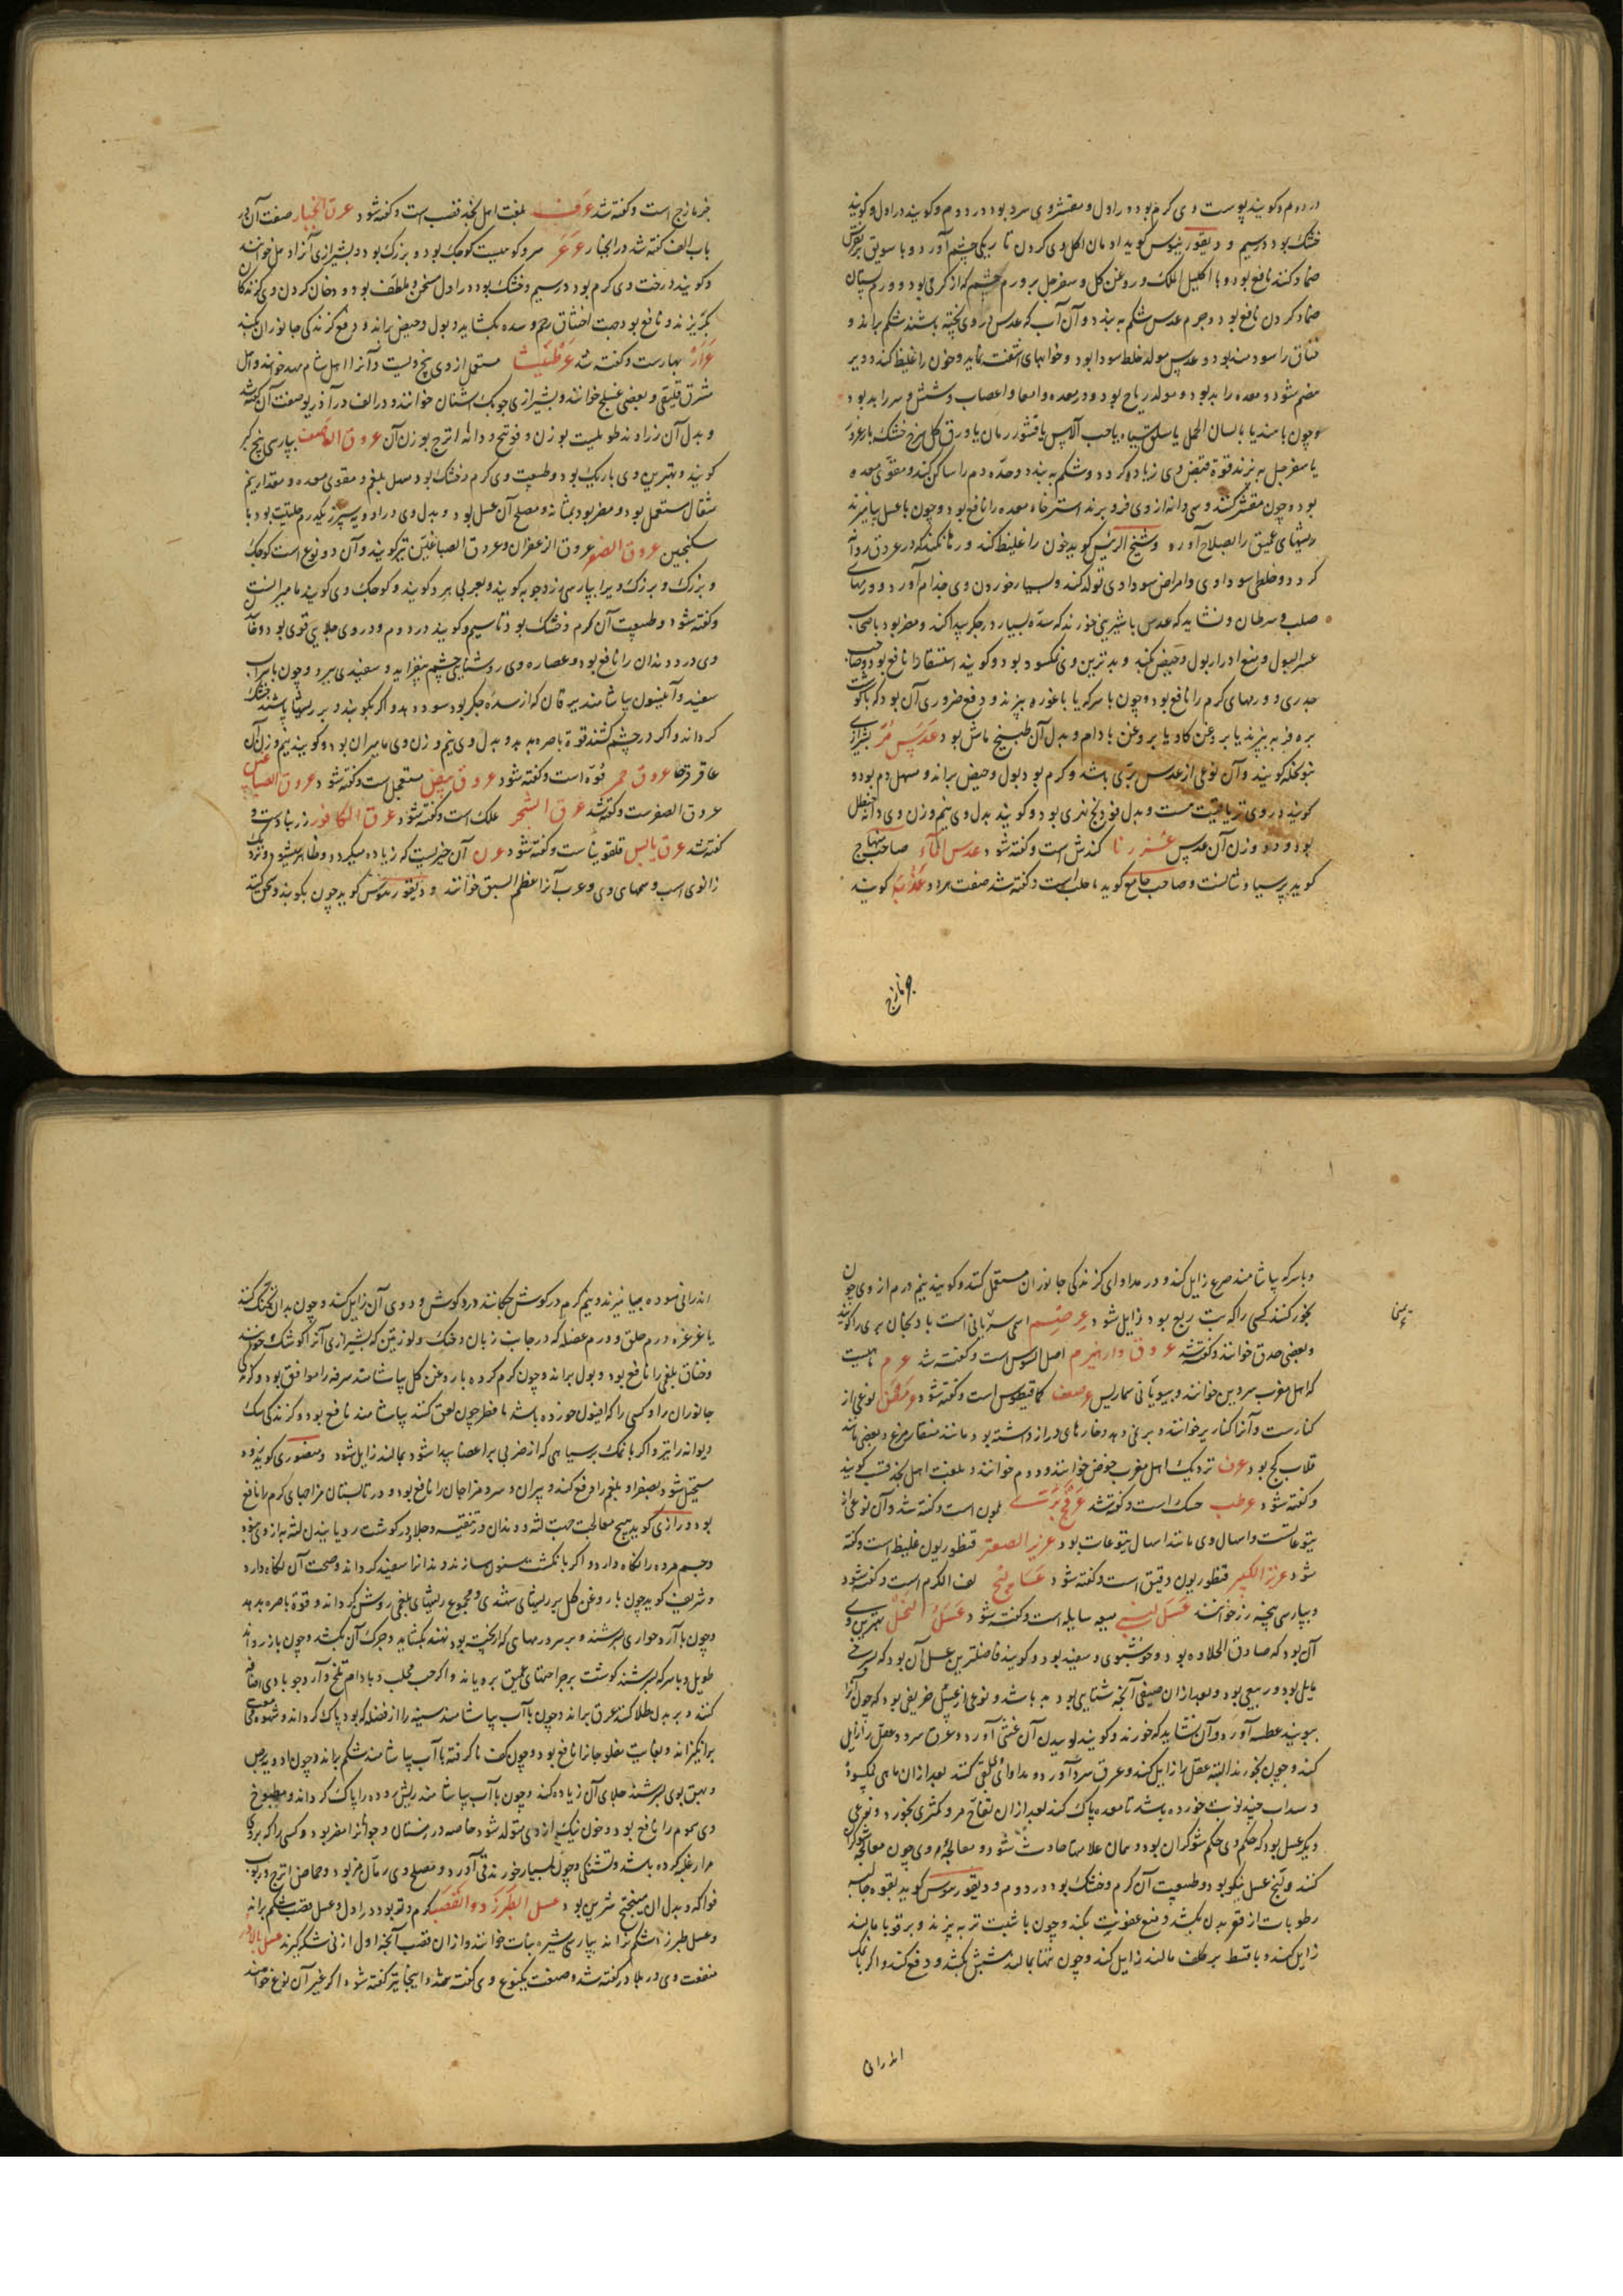 در دوم و کویند پوست وی کرم بود در اول و مقشر وی سرد بود در دوم و کویند در اول و کویند
خشک بود در سیم و دیقوریدوس کوید ادمان اکل وی کردن تاریکی چشم آورد و با سویق بر نقرس
ضماد کنند نافع بود و با اکلیل الملک و روغن کل و سفرجل بر ورم چشم که از کرمی بود و ورم پستان
ضماد کردن نافع بود و جرم عدس شکم به بندد و آن آب که عدس در وی پخته باشند شکم براند و
خناق را سودمند بود و عدس مولد خلط سودا بود و خوابهای آشفته نماید و خون را غلیظ کند و دیر
هضم شود و معده را بد بود و مولد ریاح بود و در معده و امعا و اعصاب و شش و سر را بد بود
و چون با هندبا یا بالسان الحمل یا سلق سیاه یا حب الآس یا قشور رمان یا ورق کل سرخ خشک یا زعرور
یا سفرجل به پزند قوة قبض وی زیاده کردد و شکم به بندد و حدّه دم را ساکن کند و مقوّی معده
بود و چون مقشر کنند و سی دانه از وی فرو برند استرخاء معده را نافع بود و چون با عسل بیامیزند
ریشهای عمیق را بصلاح آورد و شیخ الرئیس کوید خون را غلیظ کند و رها نکند که در عروق روانه
کردد و خلطی سوداوی و امراض سوداوی تولد کند و بسیار خوردن وی جذام آورد و ورمهای
صلب و سرطان و نشاید که عدس با شیرینی خورند که سدّه بسیار در جکر پیدا کند و مضر بود باصحاب
عسر البول و منع ادرار بول و حیض بکند و بدترین وی نمکسود بود و کویند استسقا را نافع بود و صاحب
جدری و ورمهای کرم را نافع بود و چون با سرکه یا با غوره بپزند و دفع ضروری آن بود که با کوشت
بره فربه بپزند یا بروغن کاو یا بروغن بادام و بدل آن طبیخ ماش بود عدس مر بشیرازی
بنو نخله کویند و آن نوعی از عدس برّی باشد و کرم بود بول و حیض براند و مسهل دم بود و
کویند در وی تریاقیّت هست و بدل فودنج نهری بود و کویند بدل وی نیم وزن وی دانه حنظل
بود و دو وزن آن عدس کندش است و کفته شود عدس المآء صاحب منهاج
کوید پرسیاوشانست و صاحب جامع کوید طحلب است و کفته شد صفت هر دو عَذْبَة کویند
جزمازج
جزمازج است و کفته شد بلغت اهل نجد قضب است و کفته شود عرق انجبار صفت آن در
باب الف کفته شد در انجبار عَرعَر سرو کوهیست کوچک بود و بزرک بود و بشیرازی آنرا دهل خوانند
و کویند درخت وی کرم بود در سیم و خشک بود در اول مسخن و ملطف بود و دخان کردن وی کزندکان
بکریزند و نافع بود جهت اختناق رحم و سده بکشاید و بول و حیض براند و دفع کزندکی جانوران کند
عَرَار بهارست و کفته شد عَرْطَنِیثا مستعمل از وی بیخ ویست و آنرا اهل شام خوانند و اهل
مشرق و بعضی خوانند و بشیرازی جوبک اشنان خوانند و در الف در آذریو صفت آن کفته شد
و بدل آن زراوند طویلست بوزن و فوتنج و دانه اترج بوزن آن عروق بپارسی بیخ کبر
کویند و بهترین وی باریک بود و طبیعت وی کرم و خشک بود مسهل بلغم و مقوی معده و مقدار نیم
مثقال مستعمل بود و مضر بود بمثانه و مصلح آن عسل بود و بدل وی در ادویه سپرز یکدرم حلتیت بود با
سکنجبین عروق الصفر عروق الزعفران و عروق الصباغین نیز کویند و آن دو نوع است کوچک
و بزرک و بزرک ویرا بپارسی زردچوبه کویند و بعربی هرد کویند و کوچک وی کویند مامیرانست
و کفته شود و طبیعت آن کرم و خشک بود تا سیم و کویند در دوم و در وی جلایی قوی بود و خائیدن
وی درد دندان را نافع بود و عصاره وی روشنایی چشم بیفزاید و سفیدی ببرد و چون با شراب
سفید و انیسون بیاشامند یرقان که از سدّه جکر بود سود دهد و اکر بکوبند و بر ریشها پاشند خشک
کرداند و اکر در چشم کشند قوة باصره بدهد و بدل وی نیم وزن وی مامیران بود و کویند نیم وزن آن
عاقرقرحا عروق حمر فُوّه است و کفته شود عروق بیض مستعجل است و کفته شود عروق الصباغین
عروق الصفرست و کفته شد عرق الشجر علک است و کفته شود عرق الکافور زرنبادست و
کفته شد عرق یابس فلفونیاست و کفته شود عرن آن چیزیست که زیاده میکردد و ظاهر میشود نزدیک
زانوی اسب و سمهای وی و عرب آنرا اعظم السبق خوانند و دیقوریدوس کوید چون بکوبند و سحق کنند
و با سرکه بیاشامند صرع زایل کند و در مداوای کزندکی جانوران مستعمل کنند و کویند نیم درم از وی چون
بخور کنند کسی را که تب ربع بود زایل شود عرصم اسمی سریانی است بادنجان بری را کویند
و بعضی حدق خوانند و کفته شد عروق دارهرم اصل السوس است و کفته شد عرم
که اهل مغرب سردین خوانند و بیونانی سماریس کماقیطوس است و کفته شود عرمض نوعی از
کنارست و آنرا کنار بر خوانند و خارهای دراز داشته بود مانند منقار مرغ و بعضی مانند
قلاب کج بود عرف نزدیک اهل مغرب حوض خوانند و دوم خوانند و بلغت اهل نجد قت کویند
و کفته شود عرطب حسک است و کفته شد است و کفته شد و آن نوعی از
یتوعاتست و اسهال وی مانند اسهال یتوعات بود عزیز الصغیر قنطوریون غلیظ است و کفته
شود عزیز الکبیر قنطوریون دقیق است و کفته شود عسالج لف الکرم است و کفته شود
و بپارسی پیچه رز خوانند عَسَل لبنی میعه سایله است و کفته شود عَسَلُ النحل بهترین وی
آن بود که صادق الحلاوه بود و خوشبوی و سفید بود و کویند فاضلترین عسل آن بود که بسرخی
مایل بود و ربیعی بود و بعد از آن صیفی آنچه شتایی بود بد باشد و نوعی از عسل حریفی بود که چون آنرا
ببویند عطسه آورد و آن نشاید که خورند و کویند بوییدن آن غشی آورد و عرق سرد و عقل را زایل
کند و چون بخورند البته عقل را زایل کند و عرق سرد آورد و مداوای بقی کنند بعد از آن ماهی نمکسود
و سداب چند نوبت خورده باشد تا معده پاک کند بعد از آن تفاح مز و کمثری بخورد و نوعی
دیکر عسل بود که حکم وی حکم شوکران بود و همان علامتها حادث شود و معالجه وی چون معالجه شوکران
کنند و بیخ عسل نیکو بود و طبیعت آن کرم و خشک بود در دوم و دیقوریدوس کوید قوه جالیه
رطوبات از قعر بدن بکشد و منع عفونت بکند و چون با شبت تر به پزند و بر قوبا مالند
زایل کند و با قسط بر کلف مالند زایل کند و چون تنها بمالند شپش بکشد و دفع کند و اکر با نمک
اندرانی
اندرانی سوده بیامیزند و نیم کرم در کوش چکانند درد کوش و دوی آن زایل کند و چون بدان تحنک کنند
یا غرغره ورم حلق و ورم عضله که در جانب زبان و حنک و لوزتین که بشیرازی آنرا کوشک خوانند
و خناق بلغمی را نافع بود و بول براند و چون کرم کرده با روغن کل بیاشامند سرفه را موافق بود و کزندکی
جانوران را و کسی را که افیون خورده باشد یا فطر چون لعق کنند بیاشامند نافع بود و کزندکی سک
دیوانه را نیز و اکر با نمک بر سیاهی که از ضربی بر اعضا پیدا شود بمالند زایل شود و منصوری کوید زود
مستحیل شود بصفرا و بلغم را دفع کند و پیران و سرد مزاجان را نافع بود و در تابستان مزاجهای کرم را نافع
بود و رازی کوید هیچ معالجت جهت لثه و دندان در تنقیه و جلا و کوشت رویانیدن لثه به از وی نبود
و جسم مرده را نکاه دارد و اکر با نکشت سنون سازند دندانرا سفید کرداند و صحت آن نکاه دارد
و شریف کوید چون با روغن کل بر ریشهای شهدی و مجموع ریشهای بلغمی روشن کرداند و قوة باصره بدهد
و چون با آرد حواری بسرشند و بر ورمهای که نپخته بود نهند بکشاید و چرک آن بکشد و چون با زراوند
طویل و با سرکه بسرشند کوشت بر جراحتهای عمیق برویاند و اکر حب محلب و بادام تلخ و آرد جو با وی اضافه
کنند و بر بدن طلا کنند عرق براند و چون با آب بیاشامند سینه را از فضله که بود پاک کرداند و شهوت
برانکیزاند و بغایت مفلوجانرا نافع بود و چون کف ناکرفته با آب بیاشامند شکم براند و چون ادویه برص
و بهق بوی بسرشند جلای آن زیاده کند و چون با آب بیاشامند ریش روده را پاک کرداند و مطبوخ
وی سموم را نافع بود و خون نیک از وی متولد شود خاصه در زمستان و جوانانرا مضر بود و کسی را که بر وی
مرار غلبه کرده باشد و تشنکی و چون بسیار خورند قی آورد و مصلح وی رمان مز بود و حماض اترج و ربوب
فواکه و بدل آن میبختج شیرین بود عسل الطبرزد و القصب کرم و تر بود در اول و عسل قصب شکم براند
و عسل طبرزد شکم نراند بپارسی شیره نبات خوانند و از آن قصب آنچه اول از نی شکر کیرند عسل بلادر
منفعت وی در بلادر کفته شد و صفت یکنوع وی کفته شد و اینجا نیز کفته شود اکر غیر آن نوع خواهند